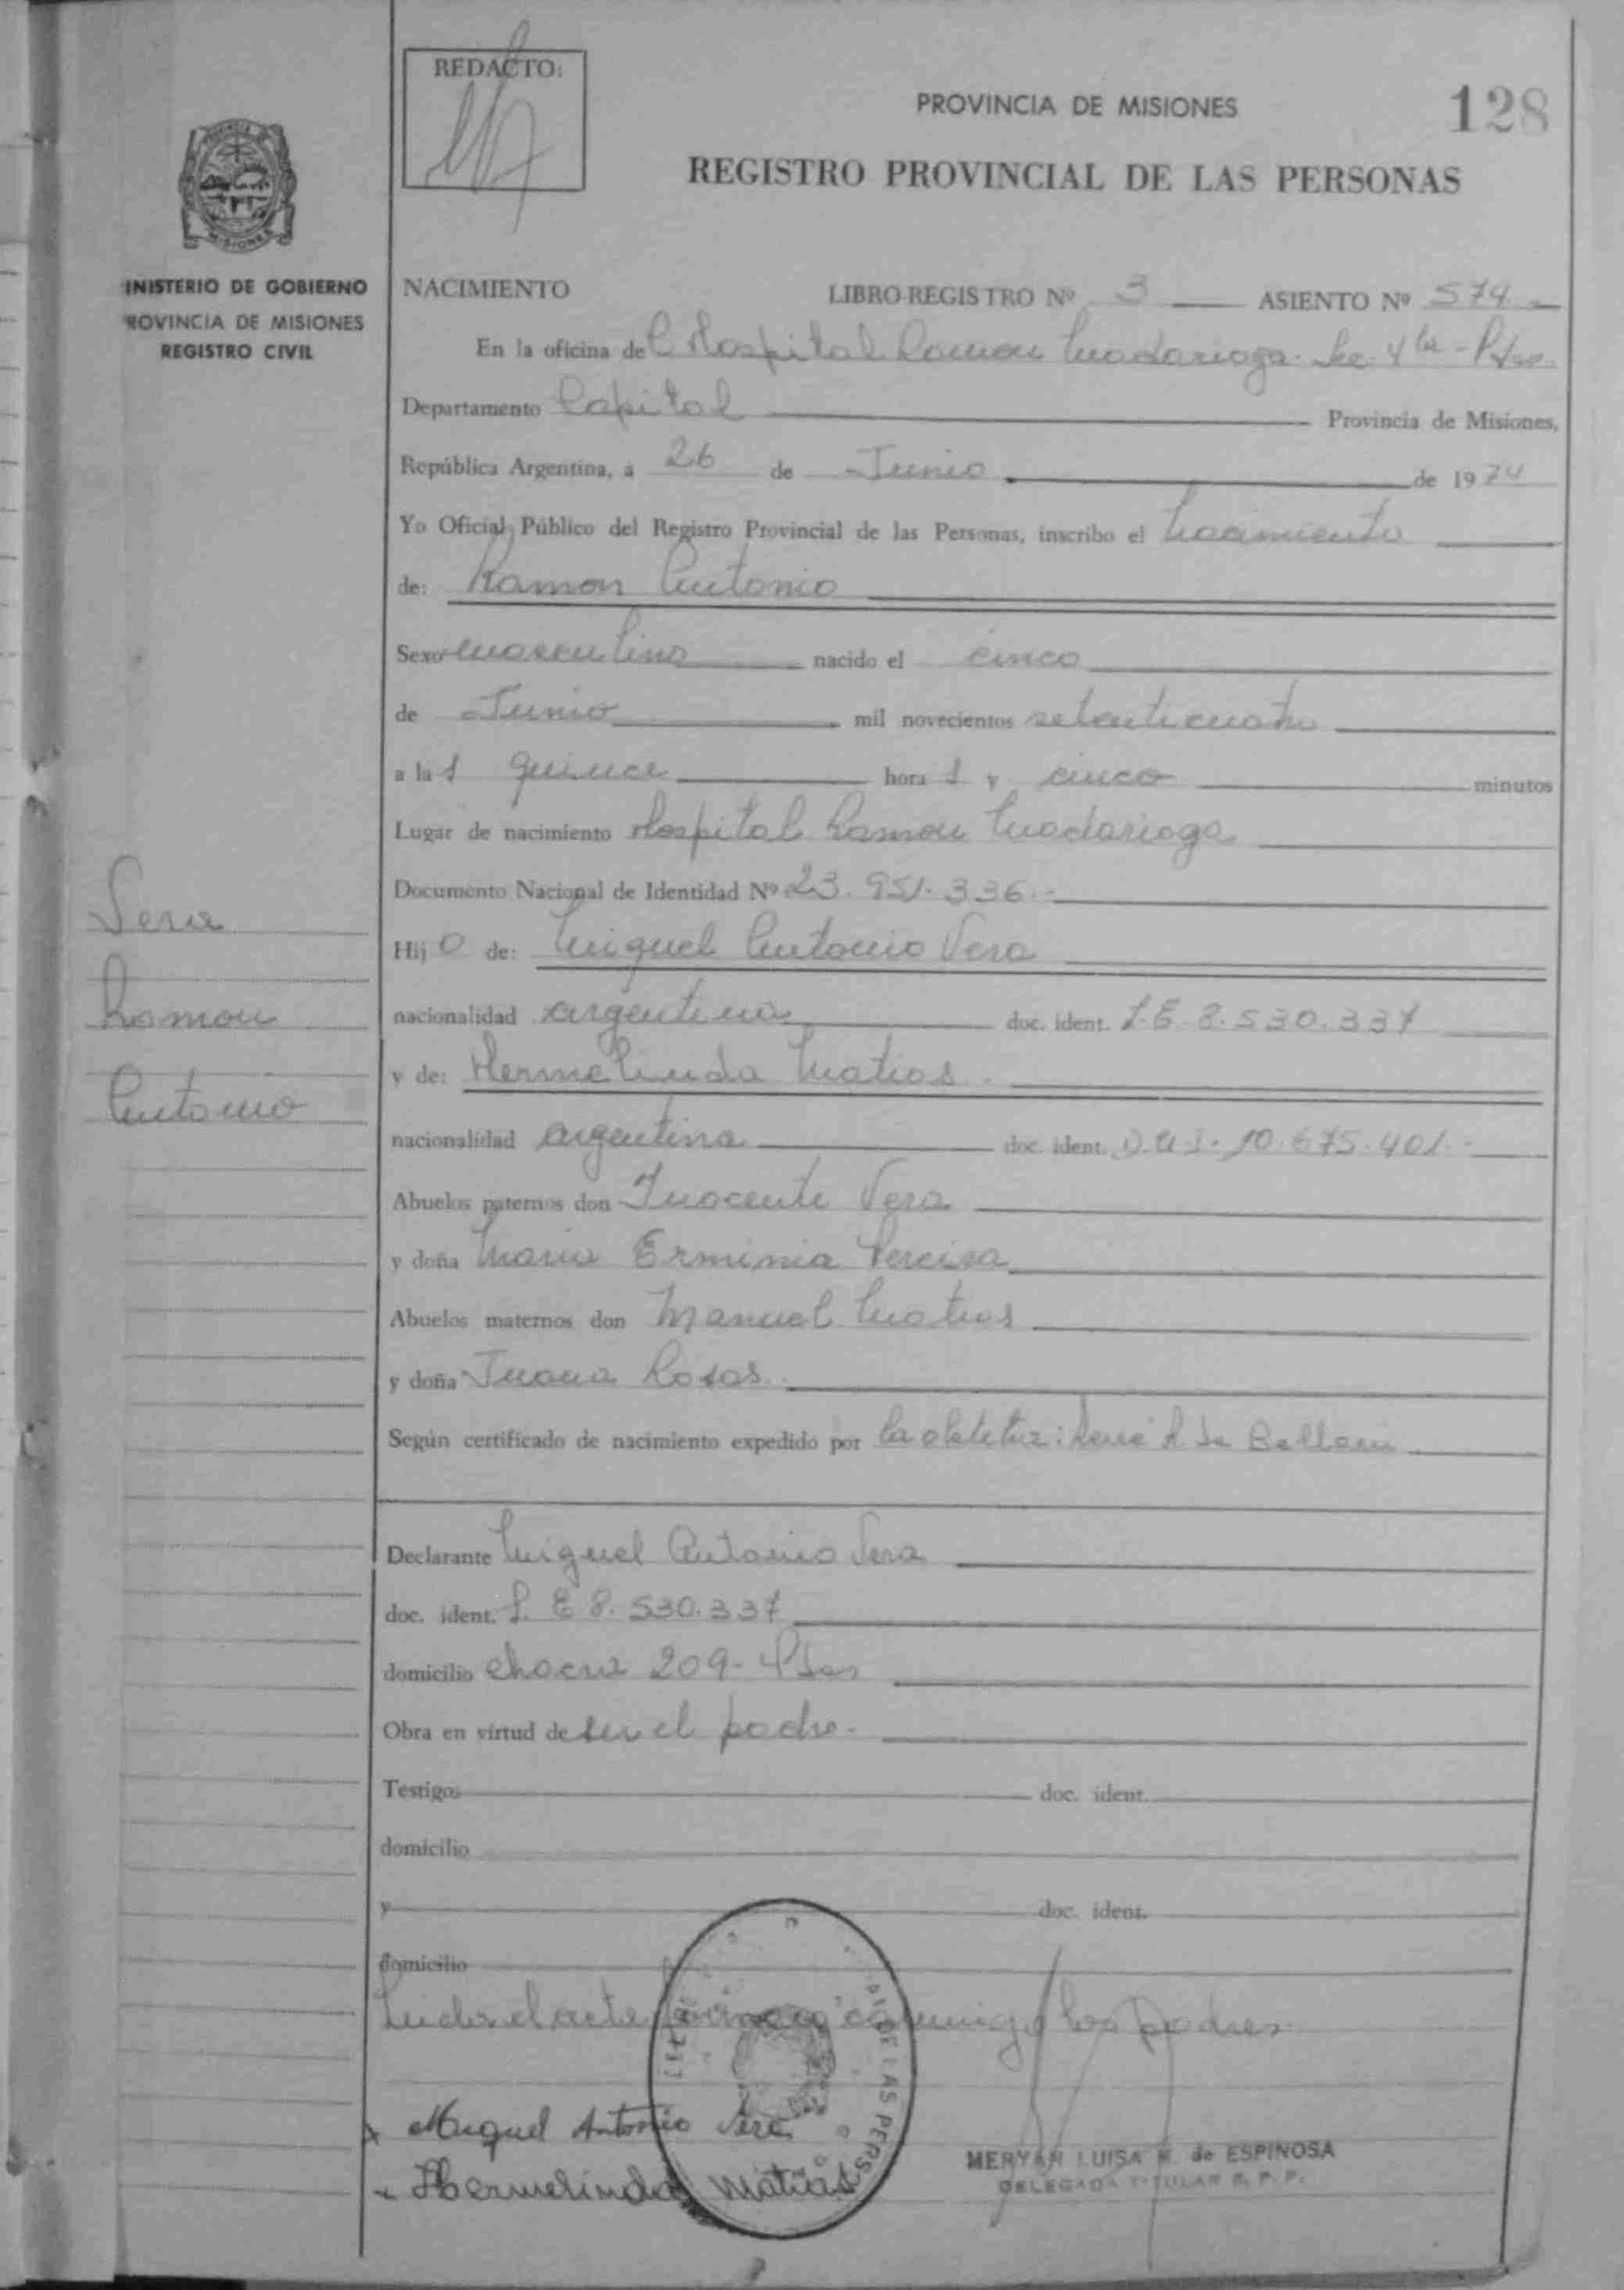 REDACTO:
PROVINCIA DE MISIONES
128
REGISTRO PROVINCIAL DE LAS PERSONAS
MISIONES
INISTERIO DE GOBIERNO
ROVINCIA DE MISIONES
REGISTRO CIVIL
NACIMIENTO LIBRO-REGISTRO Nº 3 ASIENTO Nº 574
En la oficina del Hospital Ramon Madariaga
Departamento Capital Provincia de Misiones,
República Argentina, a 26 de Junio de 1974
Yo Oficial Público del Registro Provincial de las Personas, inscribo el nacimiento
de: Ramon Antonio
Sexo masculino nacido el cinco
de Junio mil novecientos setenticuatro
a las quince horas y cinco minutos
Lugar de nacimiento Hospital Ramon Madariaga
Documento Nacional de Identidad Nº 23.951.336.-
Vera
Ramon
Antonio
Hijo de: Miguel Antonio Vera
nacionalidad argentina doc. ident. L.E. 8.530.337
y de: Hermelinda Matias.
nacionalidad argentina doc. ident. D.N.I. 10.675.401.-
Abuelos paternos don Inocente Vera
y doña Maria Erminia Pereira
Abuelos maternos don Manuel Matias
y doña Juana Rosas.
Según certificado de nacimiento expedido por la obstetriz: de
Declarante Miguel Antonio Vera
doc. ident. L. E 8.530.337
domicilio chacra 209- Pdas
Obra en virtud de ser el padre.
Testigos doc. ident.
domicilio
y doc. ident.
domicilio
Leida el acta firman conmigo los padres.
DE LAS PERS
Miguel Antonio Vera
Hermelinda Matias
MERYAN LUISA M. de ESPINOSA
DELEGADA TITULAR R. P. P.